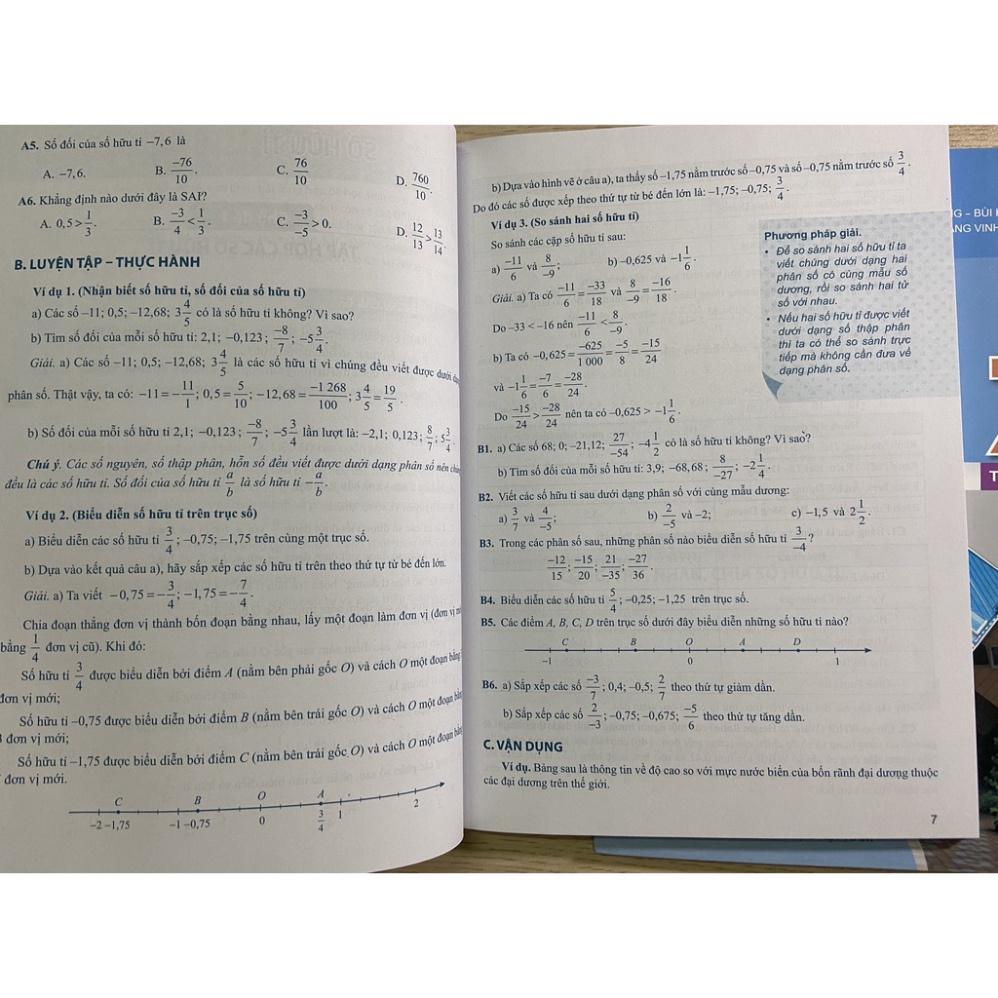 A5. Số đối của số hữu tỉ −7,6 là
A. −7,6. B. −76/10. C. 76/10 D. 760/10.
A6. Khẳng định nào dưới đây là SAI?
A. 0,5 > 1/3. B. −3/4 < 1/3. C. −3/−5 > 0. D. 12/13 > 13/14.
B. LUYỆN TẬP – THỰC HÀNH
Ví dụ 1. (Nhận biết số hữu tỉ, số đối của số hữu tỉ)
a) Các số −11; 0,5; −12,68; 3 4/5 có là số hữu tỉ không? Vì sao?
b) Tìm số đối của mỗi số hữu tỉ: 2,1; −0,123; −8/7; −5 3/4.
Giải. a) Các số −11; 0,5; −12,68; 3 4/5 là các số hữu tỉ vì chúng đều viết được dưới
phân số. Thật vậy, ta có: −11 = −11/1; 0,5 = 5/10; −12,68 = −1 268/100; 3 4/5 = 19/5.
b) Số đối của mỗi số hữu tỉ 2,1; −0,123; −8/7; −5 3/4 lần lượt là: −2,1; 0,123; 8/7; 5 3/4.
Chú ý. Các số nguyên, số thập phân, hỗn số đều viết được dưới dạng phân số nên
đều là các số hữu tỉ. Số đối của số hữu tỉ a/b là số hữu tỉ −a/b.
Ví dụ 2. (Biểu diễn số hữu tỉ trên trục số)
a) Biểu diễn các số hữu tỉ 3/4; −0,75; −1,75 trên cùng một trục số.
b) Dựa vào kết quả câu a), hãy sắp xếp các số hữu tỉ trên theo thứ tự từ bé đến lớn.
Giải. a) Ta viết −0,75 = −3/4; −1,75 = −7/4.
Chia đoạn thẳng đơn vị thành bốn đoạn bằng nhau, lấy một đoạn làm đơn vị (đơn vị
bằng 1/4 đơn vị cũ). Khi đó:
Số hữu tỉ 3/4 được biểu diễn bởi điểm A (nằm bên phải gốc O) và cách O một đoạn bằng
đơn vị mới;
Số hữu tỉ −0,75 được biểu diễn bởi điểm B (nằm bên trái gốc O) và cách O một đoạn bằng
đơn vị mới;
Số hữu tỉ −1,75 được biểu diễn bởi điểm C (nằm bên trái gốc O) và cách O một đoạn bằng
đơn vị mới.
C B O A
−2 −1,75 −1 −0,75 0 3/4 1 2
b) Dựa vào hình vẽ ở câu a), ta thấy số −1,75 nằm trước số −0,75 và số −0,75 nằm trước số 3/4.
Do đó các số được xếp theo thứ tự từ bé đến lớn là: −1,75; −0,75; 3/4.
Ví dụ 3. (So sánh hai số hữu tỉ)
So sánh các cặp số hữu tỉ sau:
a) −11/6 và 8/−9; b) −0,625 và −1 1/6.
Giải. a) Ta có −11/6 = −33/18 và 8/−9 = −16/18.
Do −33 < −16 nên −11/6 < 8/−9.
b) Ta có −0,625 = −625/1 000 = −5/8 = −15/24
và −1 1/6 = −7/6 = −28/24.
Do −15/24 > −28/24 nên ta có −0,625 > −1 1/6.
Phương pháp giải.
• Để so sánh hai số hữu tỉ ta
viết chúng dưới dạng hai
phân số có cùng mẫu số
dương, rồi so sánh hai tử
số với nhau.
• Nếu hai số hữu tỉ được viết
dưới dạng số thập phân
thì ta có thể so sánh trực
tiếp mà không cần đưa về
dạng phân số.
B1. a) Các số 68; 0; −21,12; 27/−54; −4 1/2 có là số hữu tỉ không? Vì sao?
b) Tìm số đối của mỗi số hữu tỉ: 3,9; −68,68; 8/−27; −2 1/4.
B2. Viết các số hữu tỉ sau dưới dạng phân số với cùng mẫu dương:
a) 3/7 và 4/−5; b) 2/−5 và −2; c) −1,5 và 2 1/2.
B3. Trong các phân số sau, những phân số nào biểu diễn số hữu tỉ 3/−4?
−12/15; −15/20; 21/−35; −27/36.
B4. Biểu diễn các số hữu tỉ 5/4; −0,25; −1,25 trên trục số.
B5. Các điểm A, B, C, D trên trục số dưới đây biểu diễn những số hữu tỉ nào?
C B O A D
−1 0 1
B6. a) Sắp xếp các số −3/7; 0,4; −0,5; 2/7 theo thứ tự giảm dần.
b) Sắp xếp các số 2/−3; −0,75; −0,675; −5/6 theo thứ tự tăng dần.
C. VẬN DỤNG
Ví dụ. Bảng sau là thông tin về độ cao so với mực nước biển của bốn rãnh đại dương thuộc
các đại dương trên thế giới.
7
– BÙI
VINH